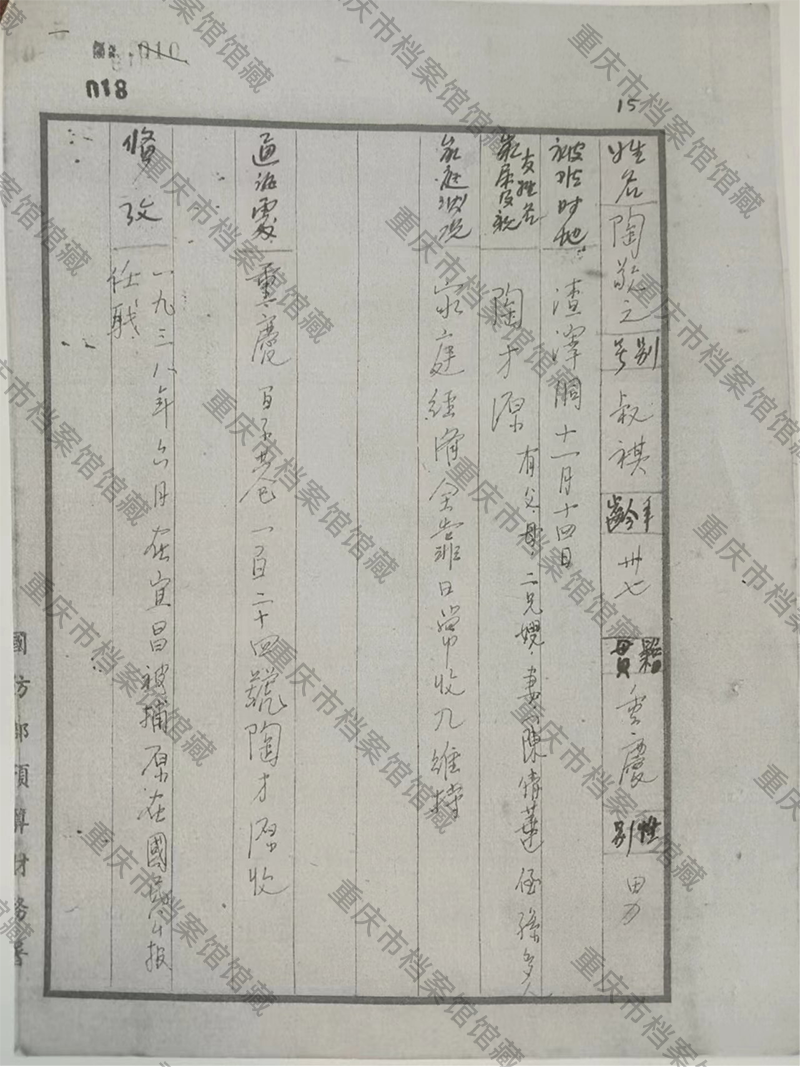 018
15
姓名 陶敬之 别号 叔祺 年龄 卅七 籍貫 重慶 性别 男
被难时地 渣滓洞十一月十四日
家属及親友姓名 陶才源 有父母 二兄嫂 妻陳倩蓮 侄孫多人
家庭狀况 家庭經濟全靠日常收入維持
通訊處 重慶百子巷一百二十四號陶才源收
備攷 一九三八年六月在宜昌被捕原在國民公报
任職
國防部預算財務署
重庆市档案馆馆藏